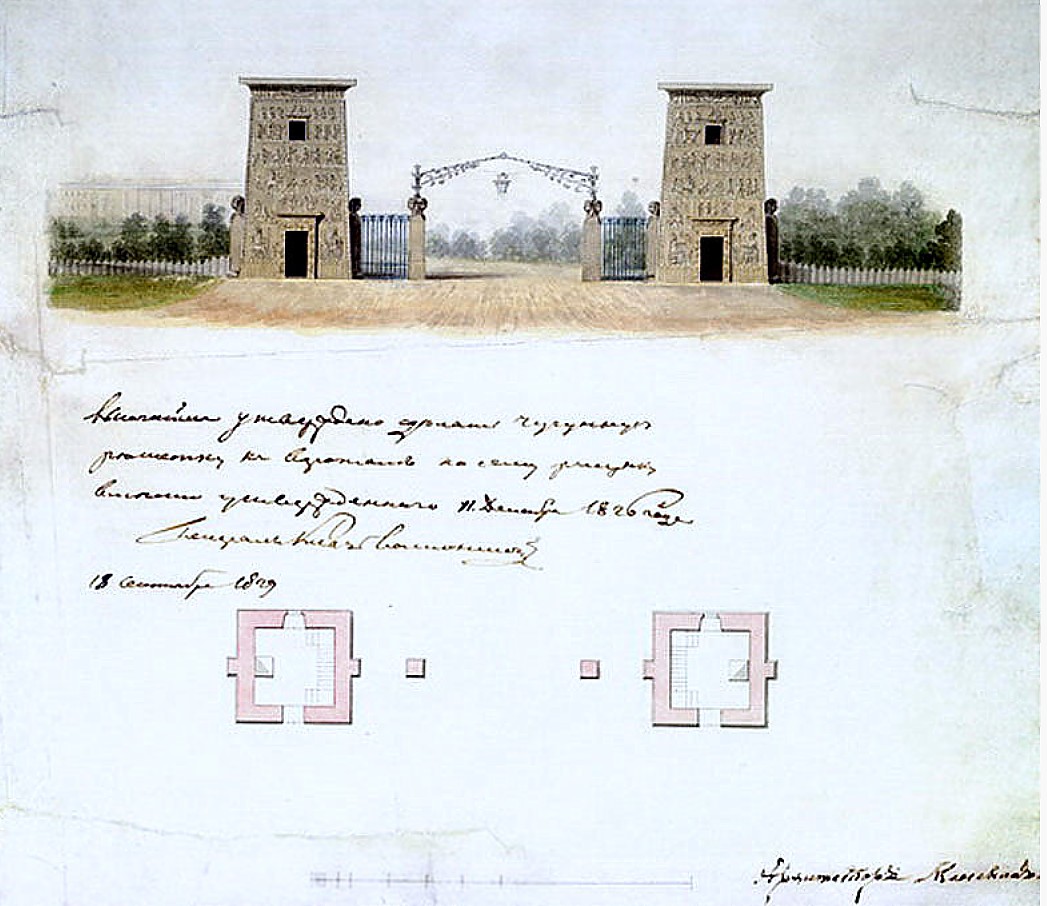 Высочайше утверждено сделать чугунную
решетку къ воротамъ по сему рисунку
утвержденнаго 11 Декабря 1826 года
Генералъ Князь Волконской
18 Сентября 1829
Архитекторъ Менеласъ